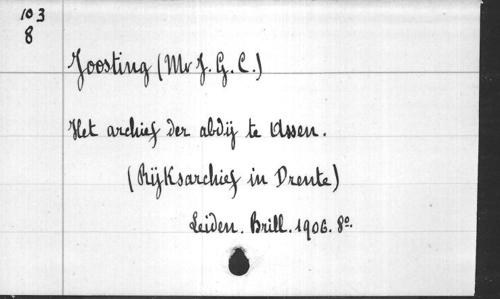 103
8
Joosting (Mr J. G. C.)
Het archief der abdij te Assen.
(Rijksarchief in Drente)
Leiden. Brill. 1906. 8º.